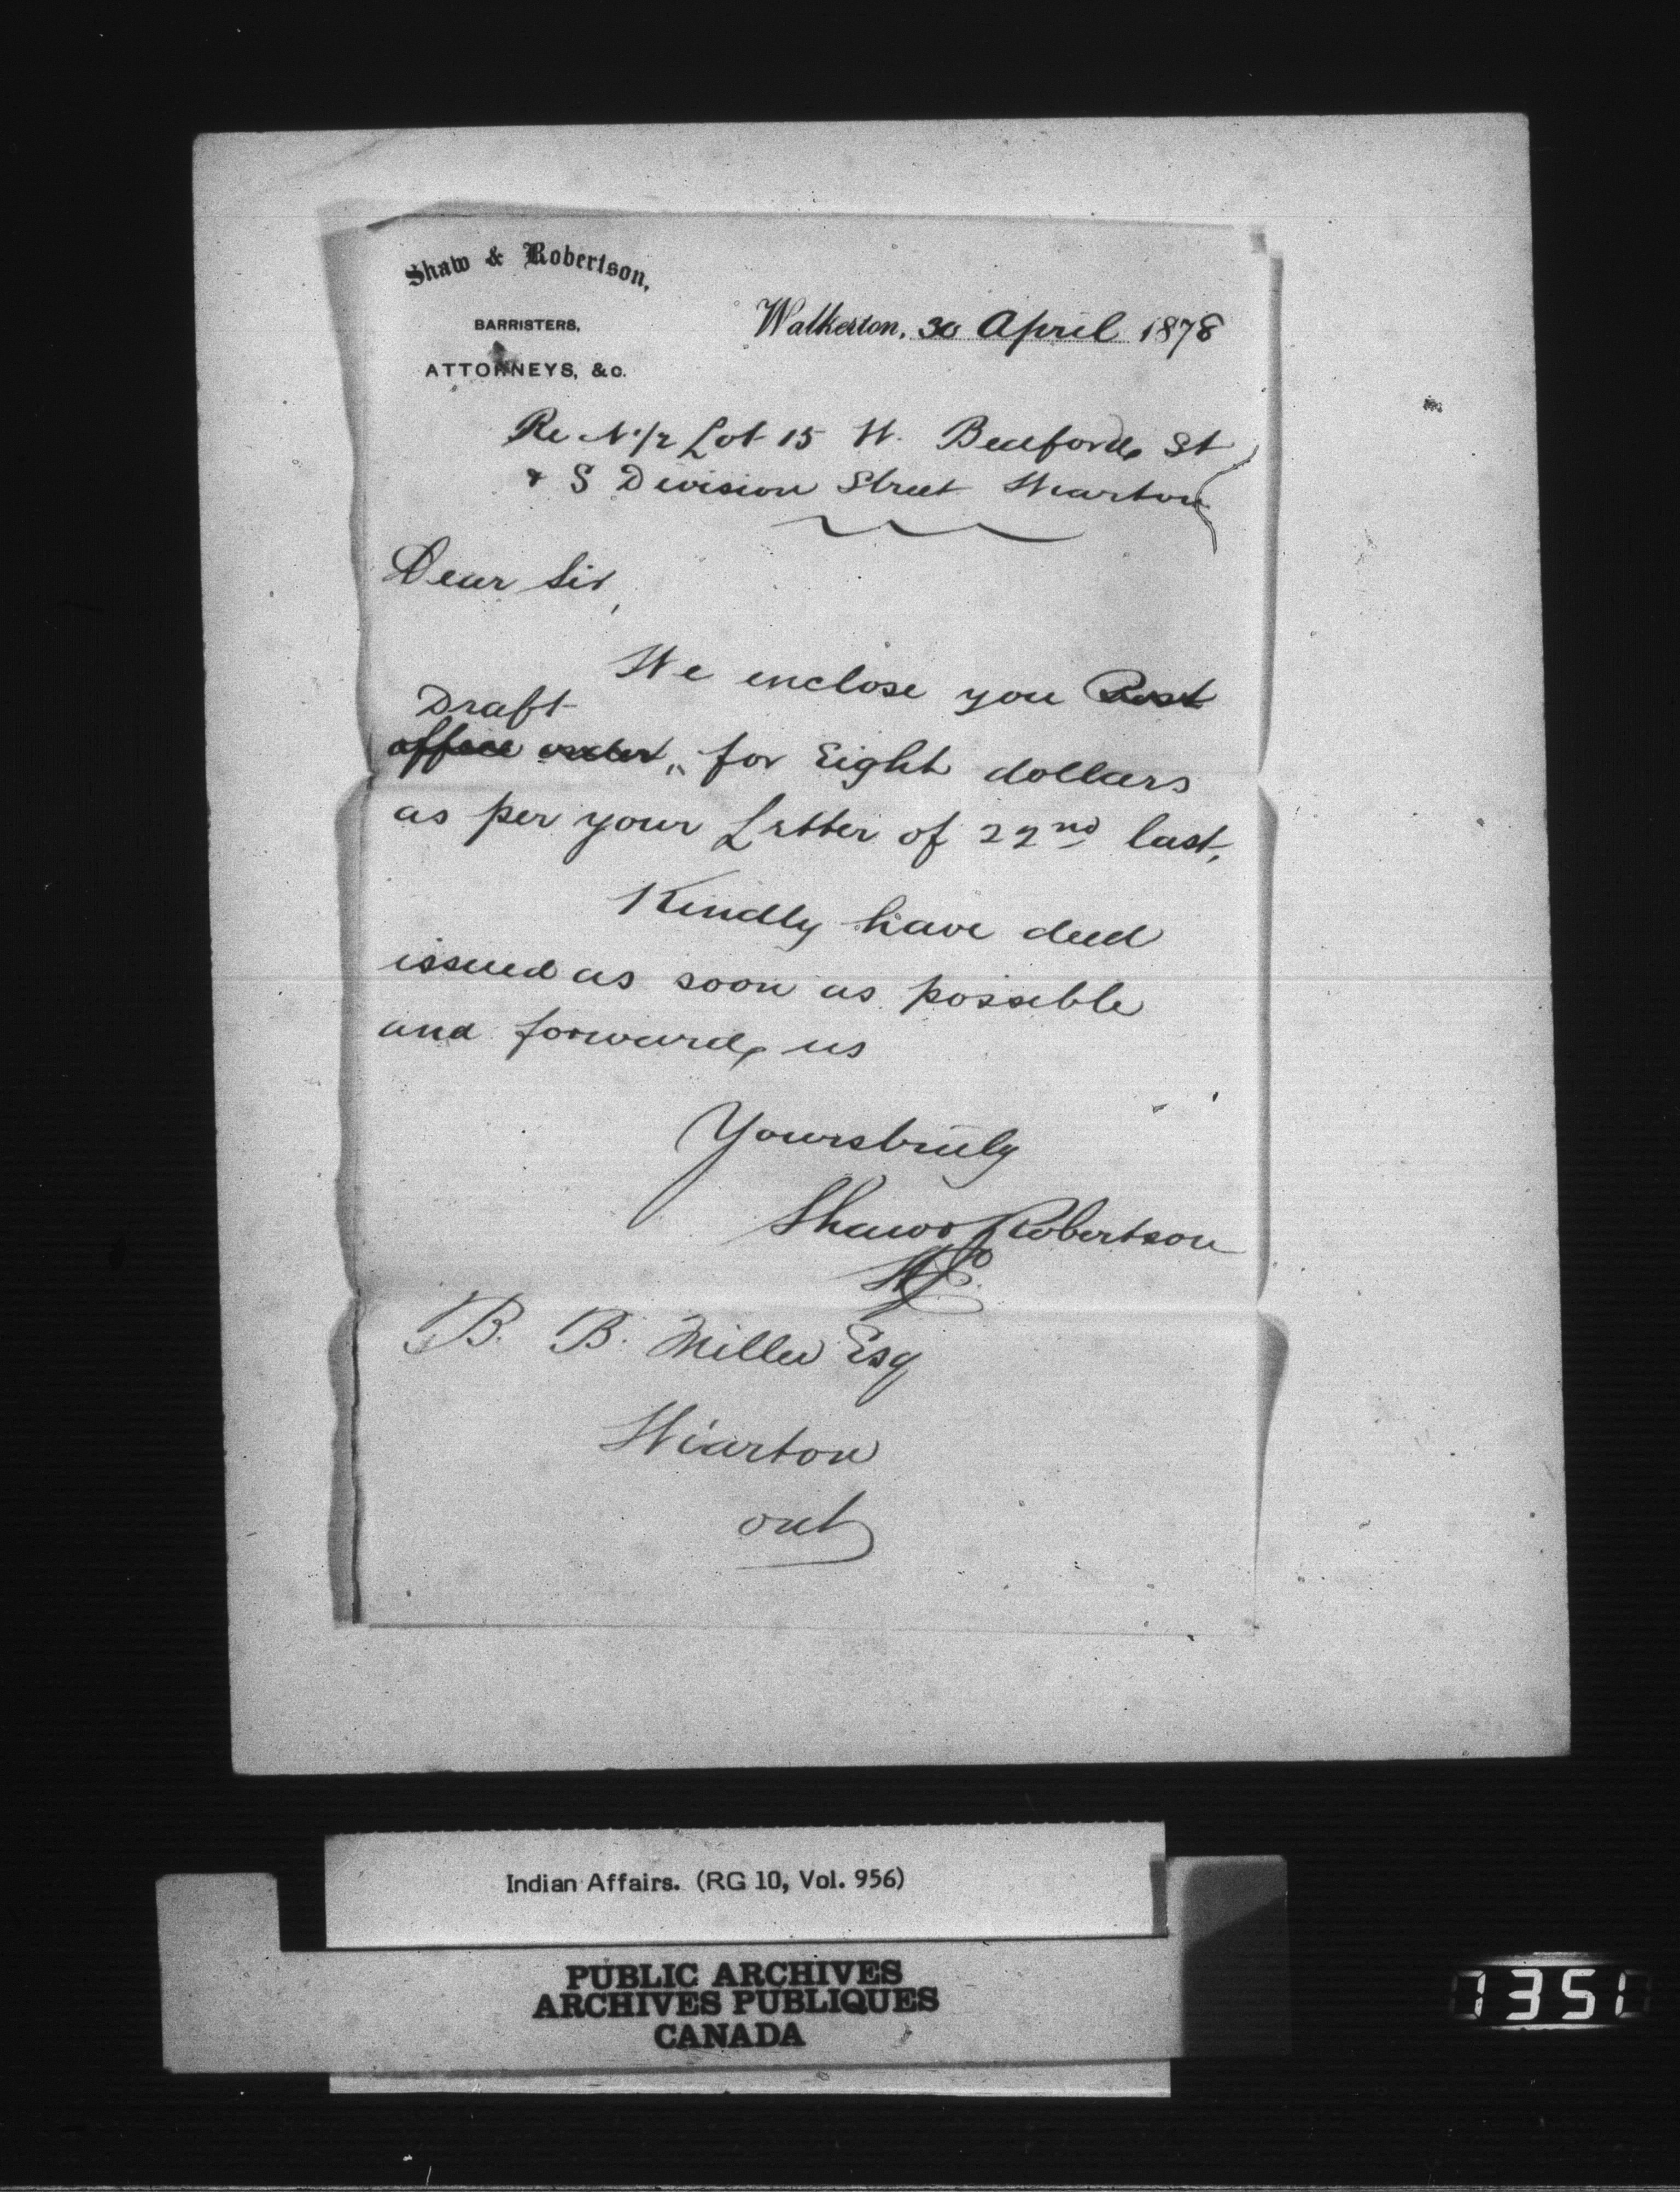 Shaw & Robertson,
BARRISTERS,
ATTORNEYS, &c.
Walkerton, 30 April 1878
Re N 1/2 Lot 15 W. Bedford St
& S Division Street Wiarton
Dear Sir,
We enclose you Post
Draft
office order, for Eight dollars
as per your Letter of 22nd last,
Kindly have deed
issued as soon as possible
and forward us
Yours truly
Shaw & Robertson
B. B. Miller Esq
Wiarton
Ont
Indian Affairs. (RG 10, Vol. 956)
PUBLIC ARCHIVES
ARCHIVES PUBLIQUES
CANADA
1351